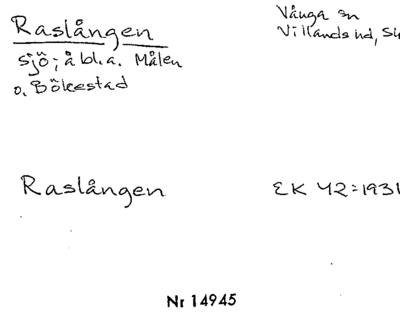 Raslången
sjö; å bl.a. Målen
o. Bökestad
Vånga sn
Villands hd, Sk
Raslången
EK 42=1931
Nr 14945